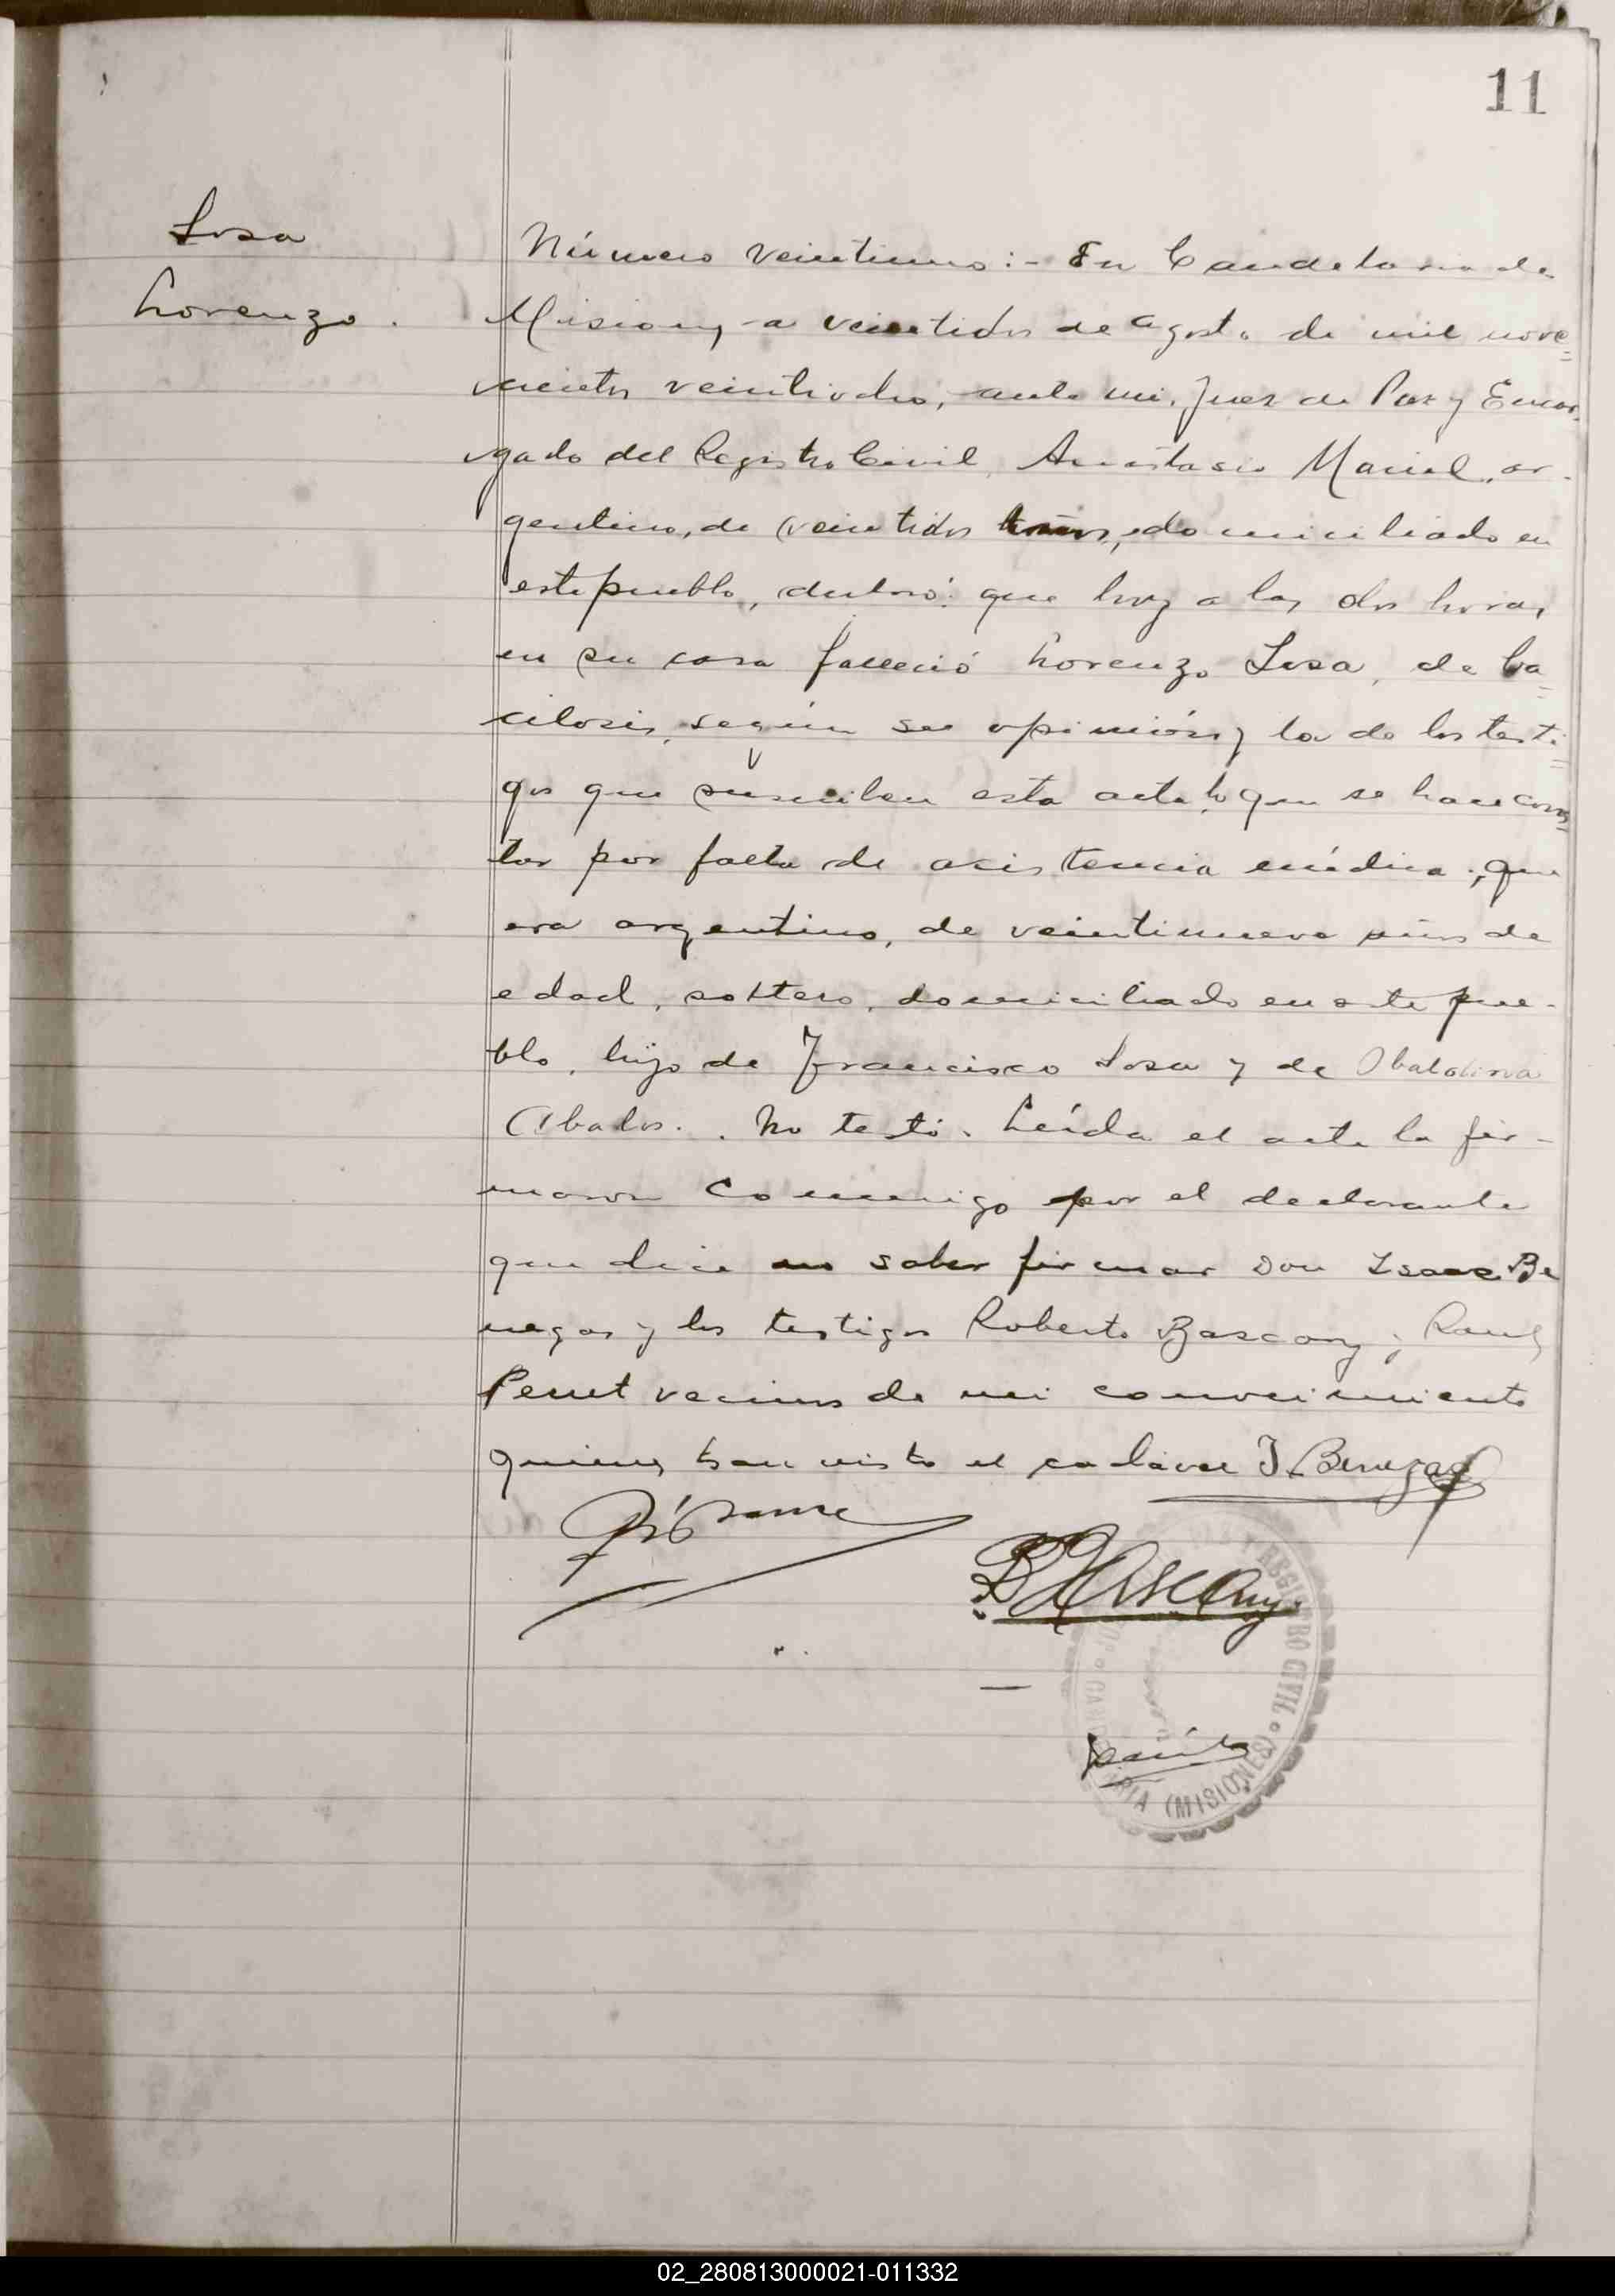 11
Sosa
Lorenzo.
Número veintiuno:- En Candelaria de
Misiones a veintidos de agosto de mil nove=
cientos veintiocho, ante mi, Juez de Paz y Encar=
gado del Registro Civil, Anastasio Maciel, ar-
gentino, de veintidos años, domiciliado en
este pueblo, declaró: que hoy a las dos horas
en su casa falleció Lorenzo Sosa, de ba=
cilosis, según su opinión y la de los testi=
gos que suscriben esta acta, lo que se hace cons=
tar por falta de asistencia médica; que
era argentino, de veintinueve años de
edad, soltero, domiciliado en este pue-
blo, hijo de Francisco Sosa y de
Abalos. No testó. Leída el acta la fir-
maron conmigo por el declarante
que dice no saber firmar Don Isaac Be
negas y los testigos Roberto Bascary y Raul
Perret vecinos de mi conocimiento
quienes han visto el cadáver I. Benegas
REGISTRO CIVIL
CANDELARIA (MISIONES)
02_280813000021-011332